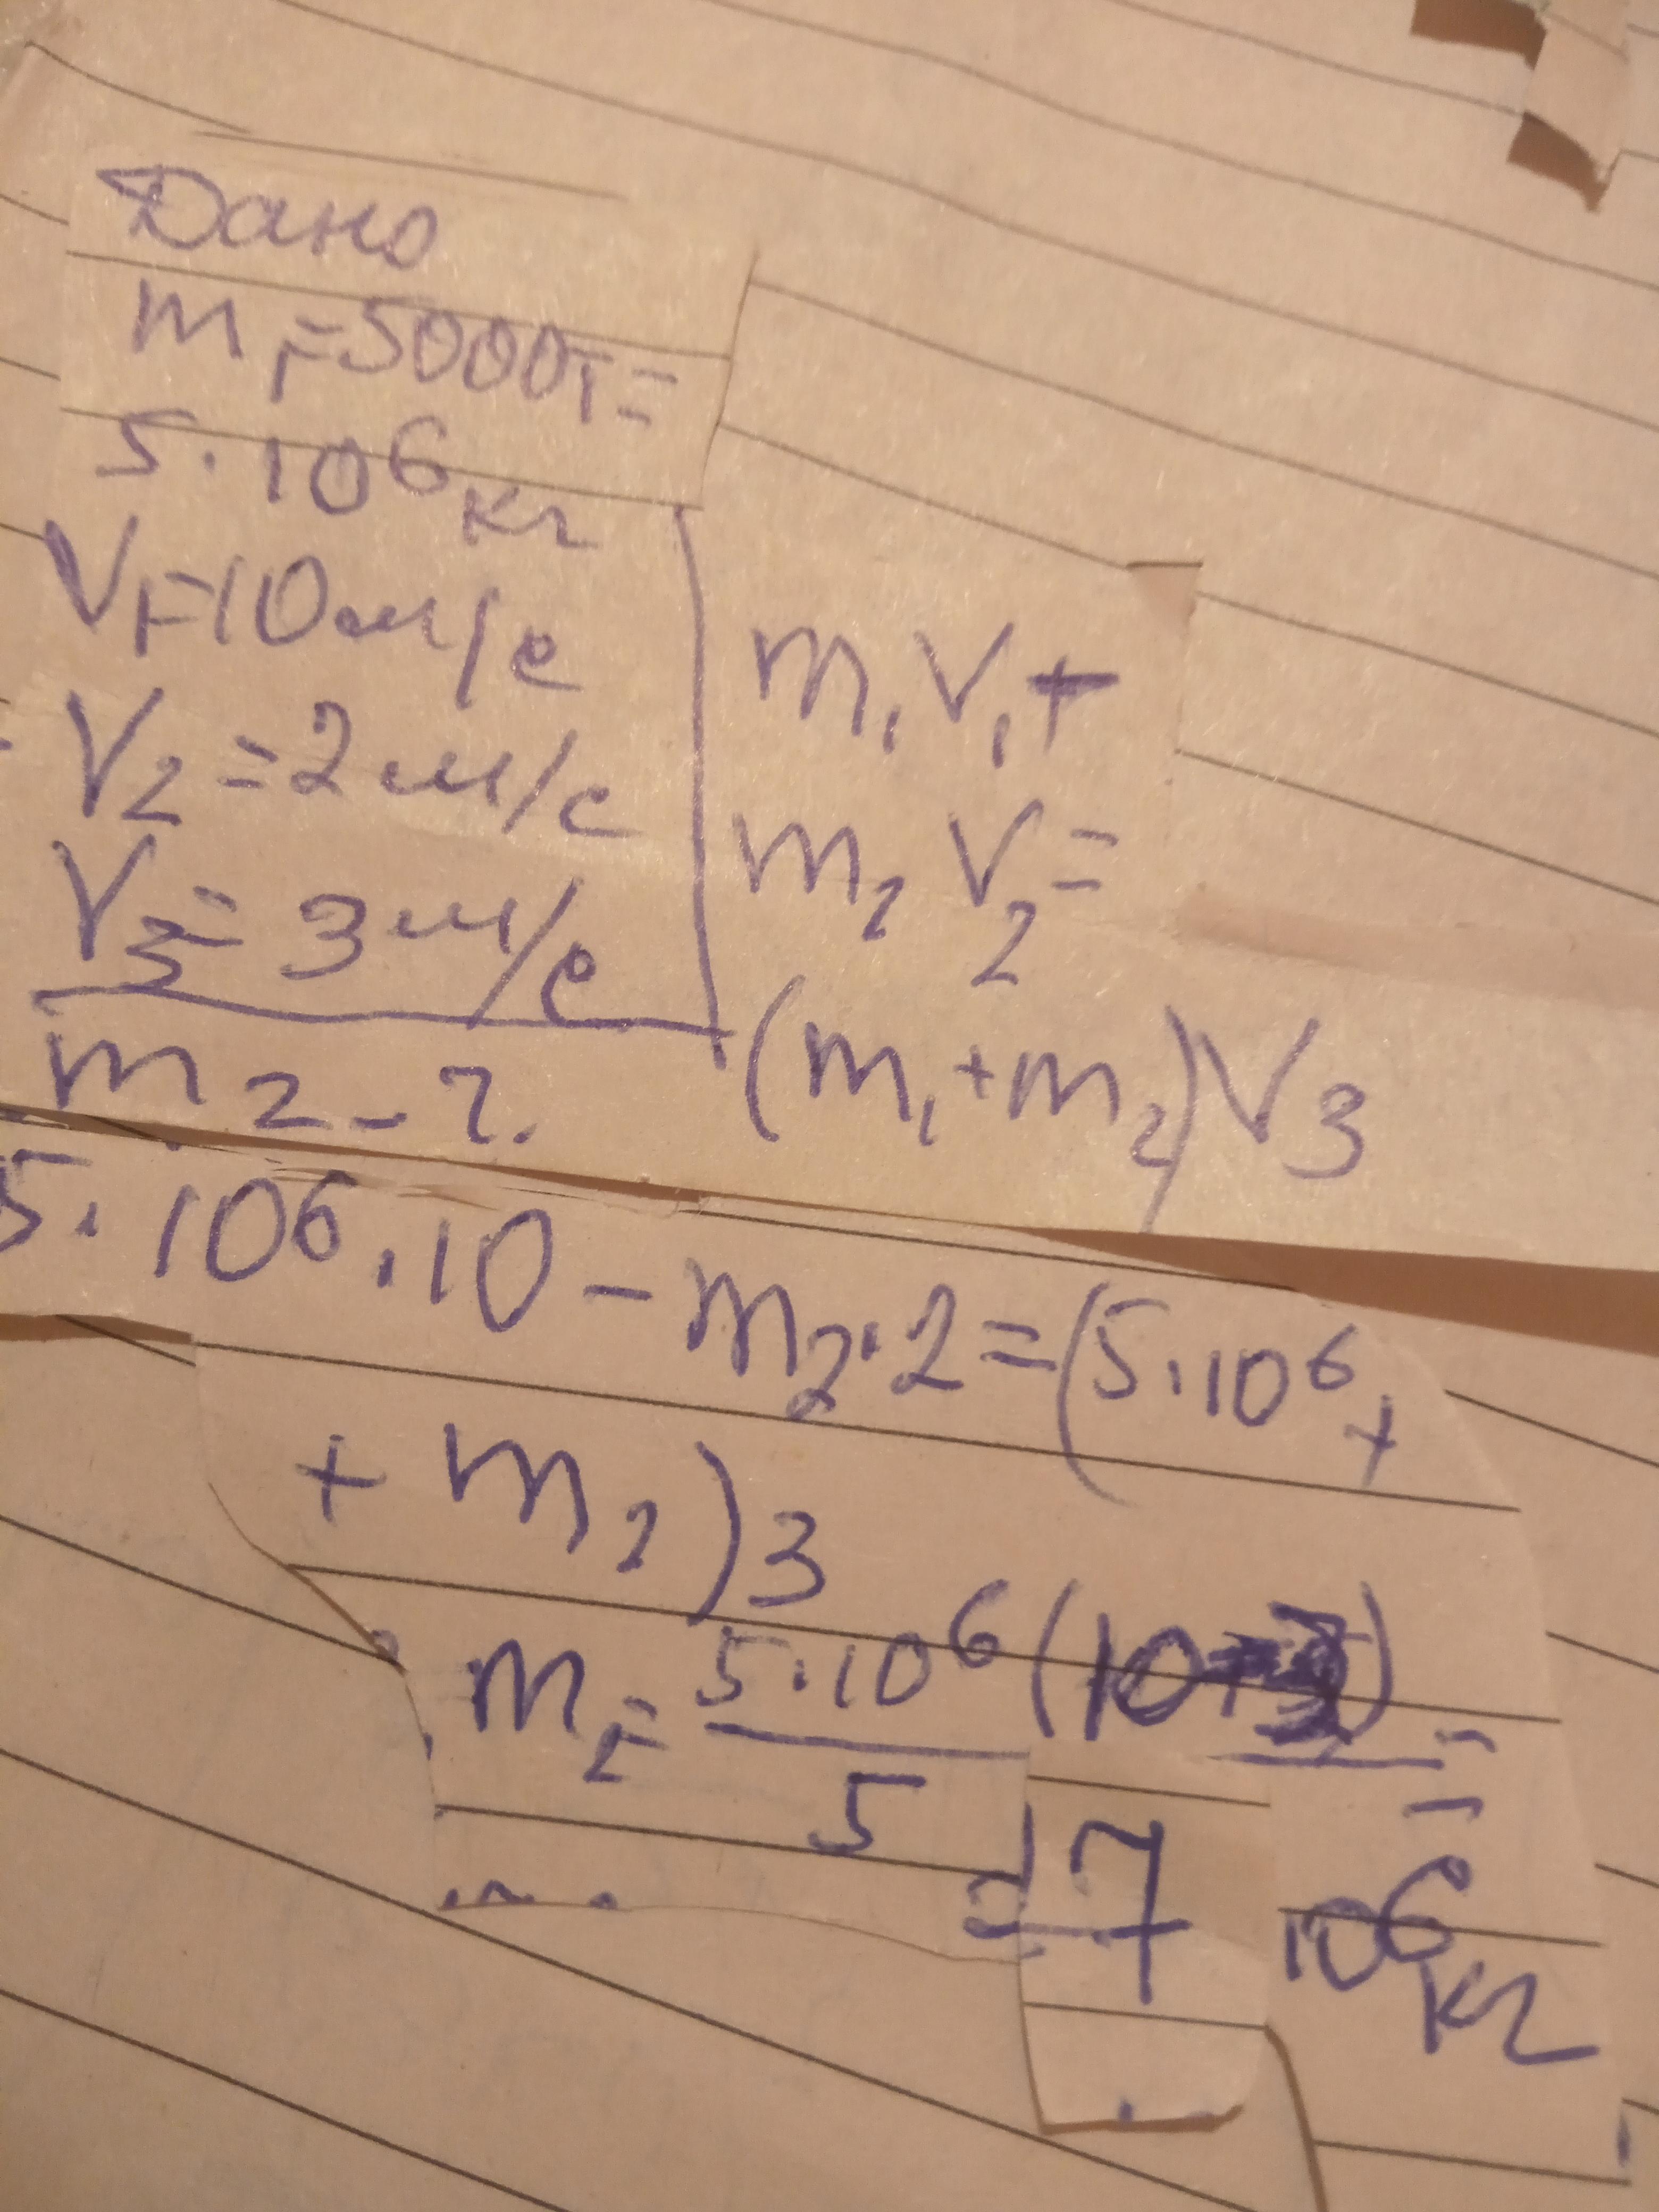 Дано
m₁=5000т=
5·10⁶кг
V₁=10м/с
V₂=2м/с
V₃=3м/с
m₂-?
m₁V₁+
m₂V₂=
(m₁+m₂)V₃
5·10⁶·10-m₂·2=(5·10⁶+
+m₂)3
m₂=5·10⁶(10-3)/5=
=7 10⁶
кг